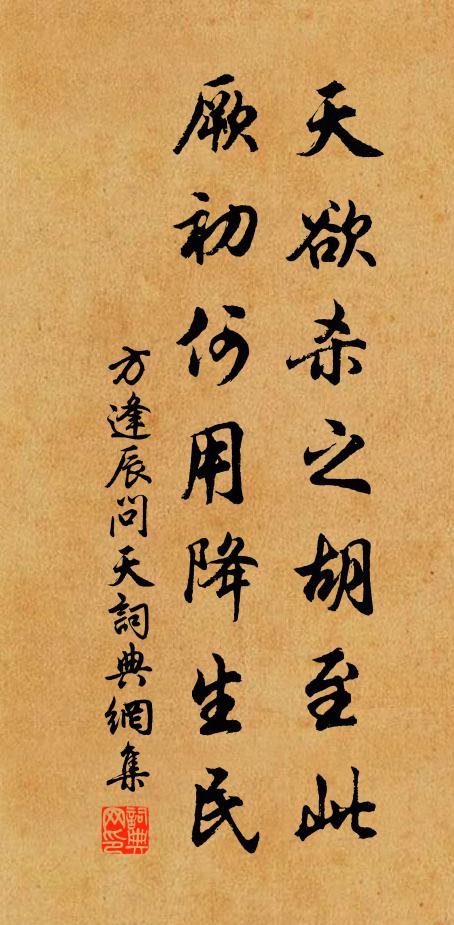 天欲杀之胡至此
厥初何用降生民
方逢辰问天詞典網集
詞典网印